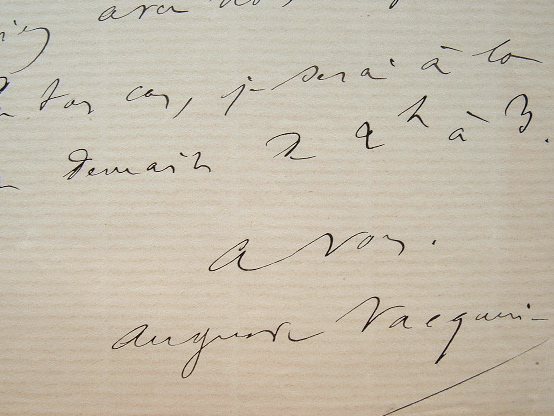 avec
tous cas, je serai à la
demain de 2 h à 3.
à vous.
Auguste Vacquerie